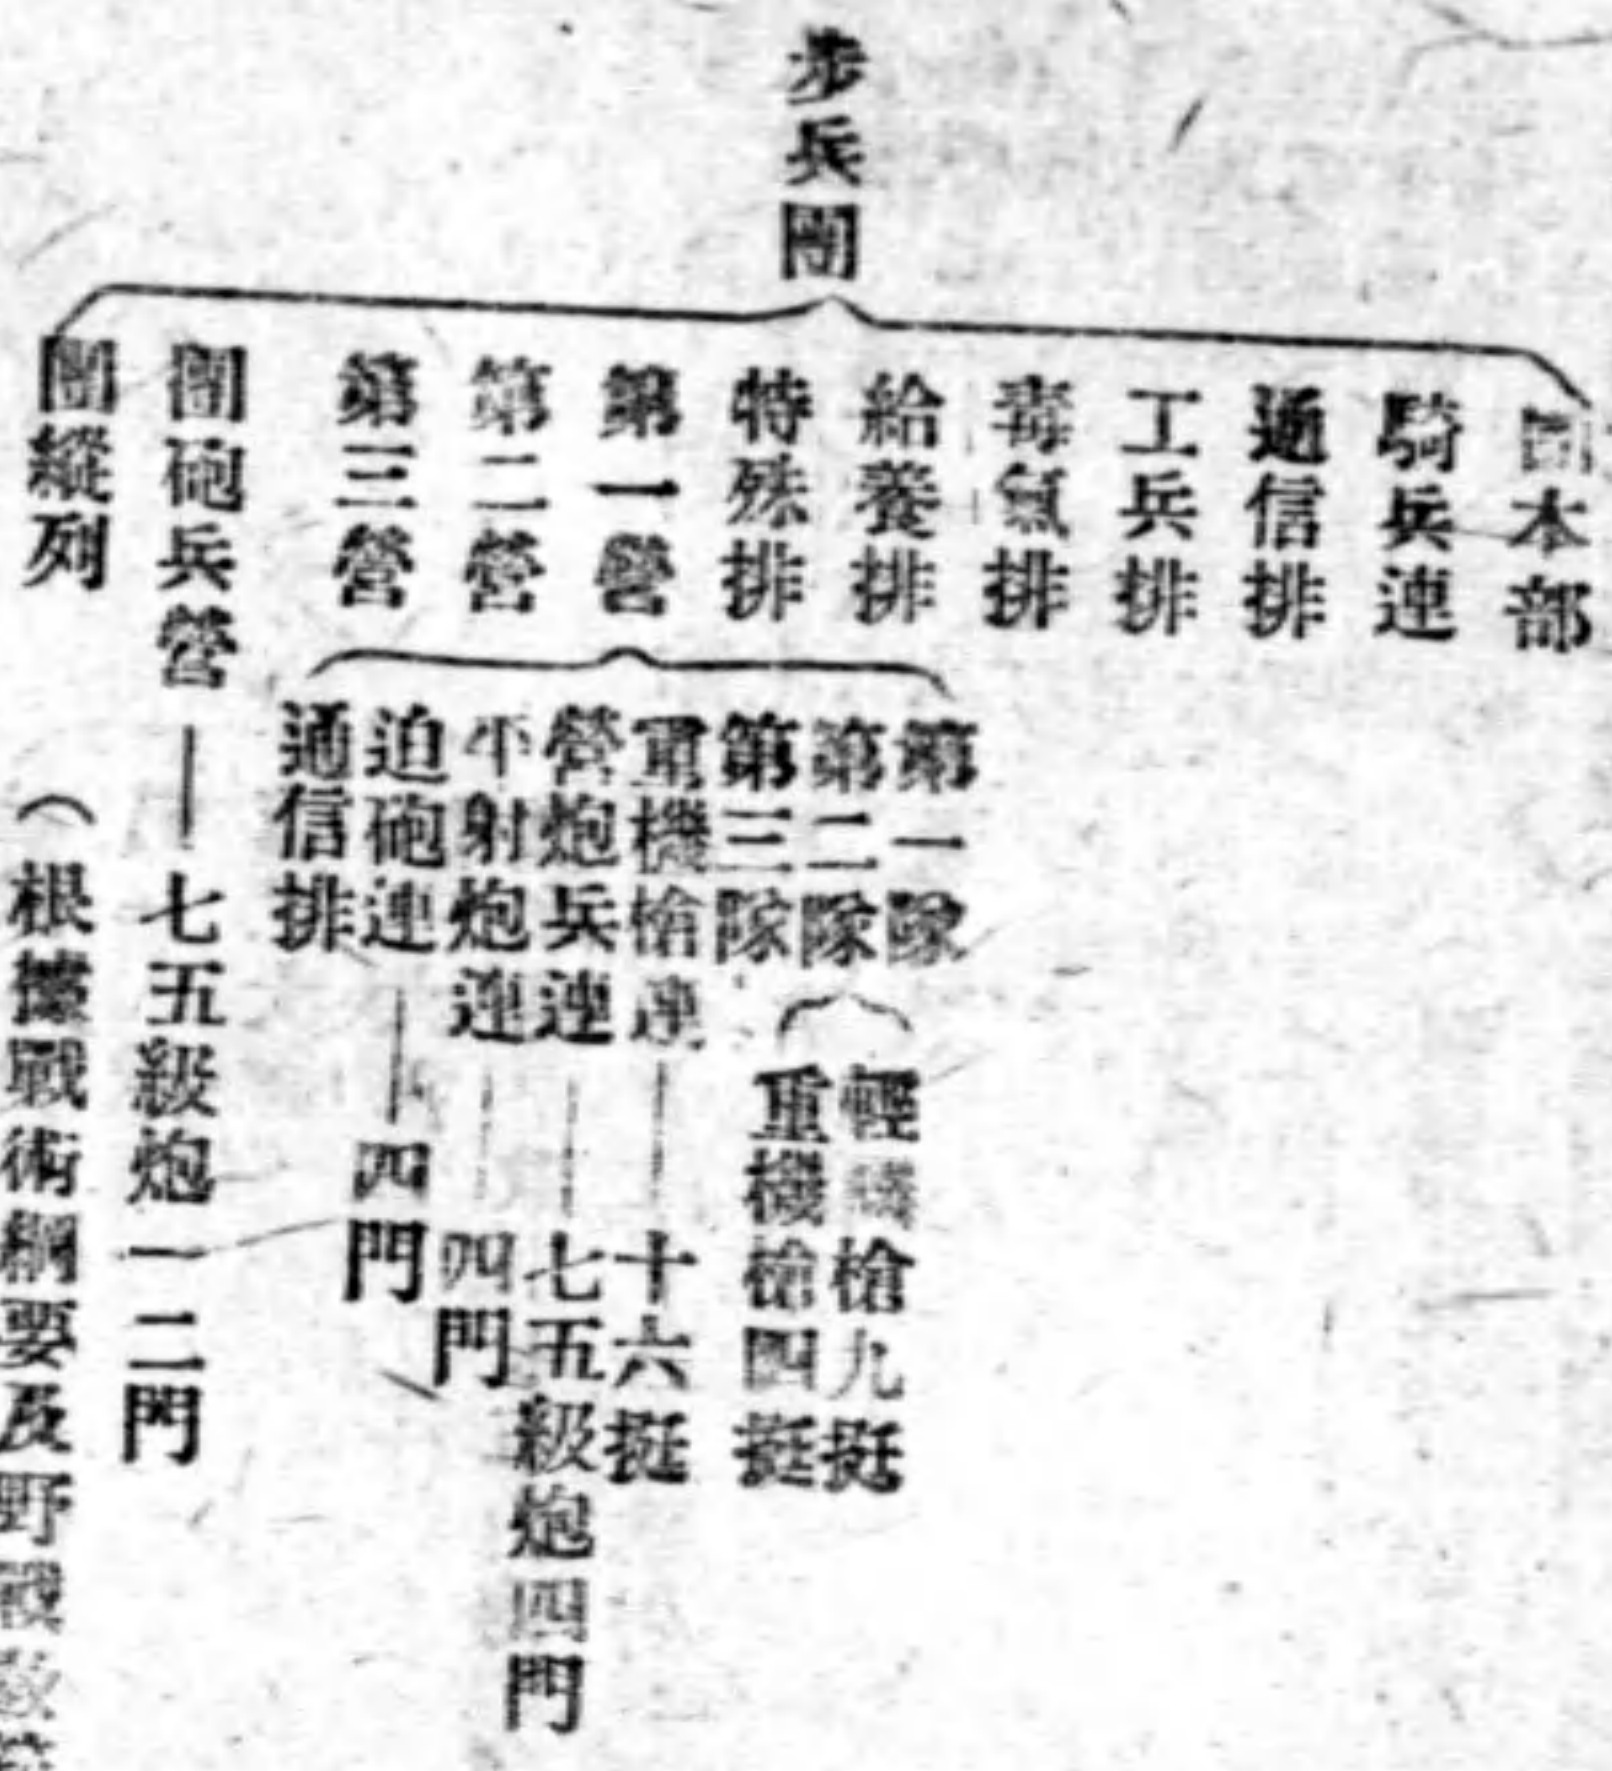 步兵團
團本部
騎兵連
通信排
工兵排
毒氣排
給養排
特殊排
第一營
第二營
第三營
團砲兵營——七五級炮一二門
團縱列
第一隊
第二隊
第三隊
輕機槍九挺
重機槍四挺
重機槍連——十六挺
營炮兵連——七五級炮四門
平射炮連——四門
迫砲連——四門
通信排
（根據戰術綱要及野戰